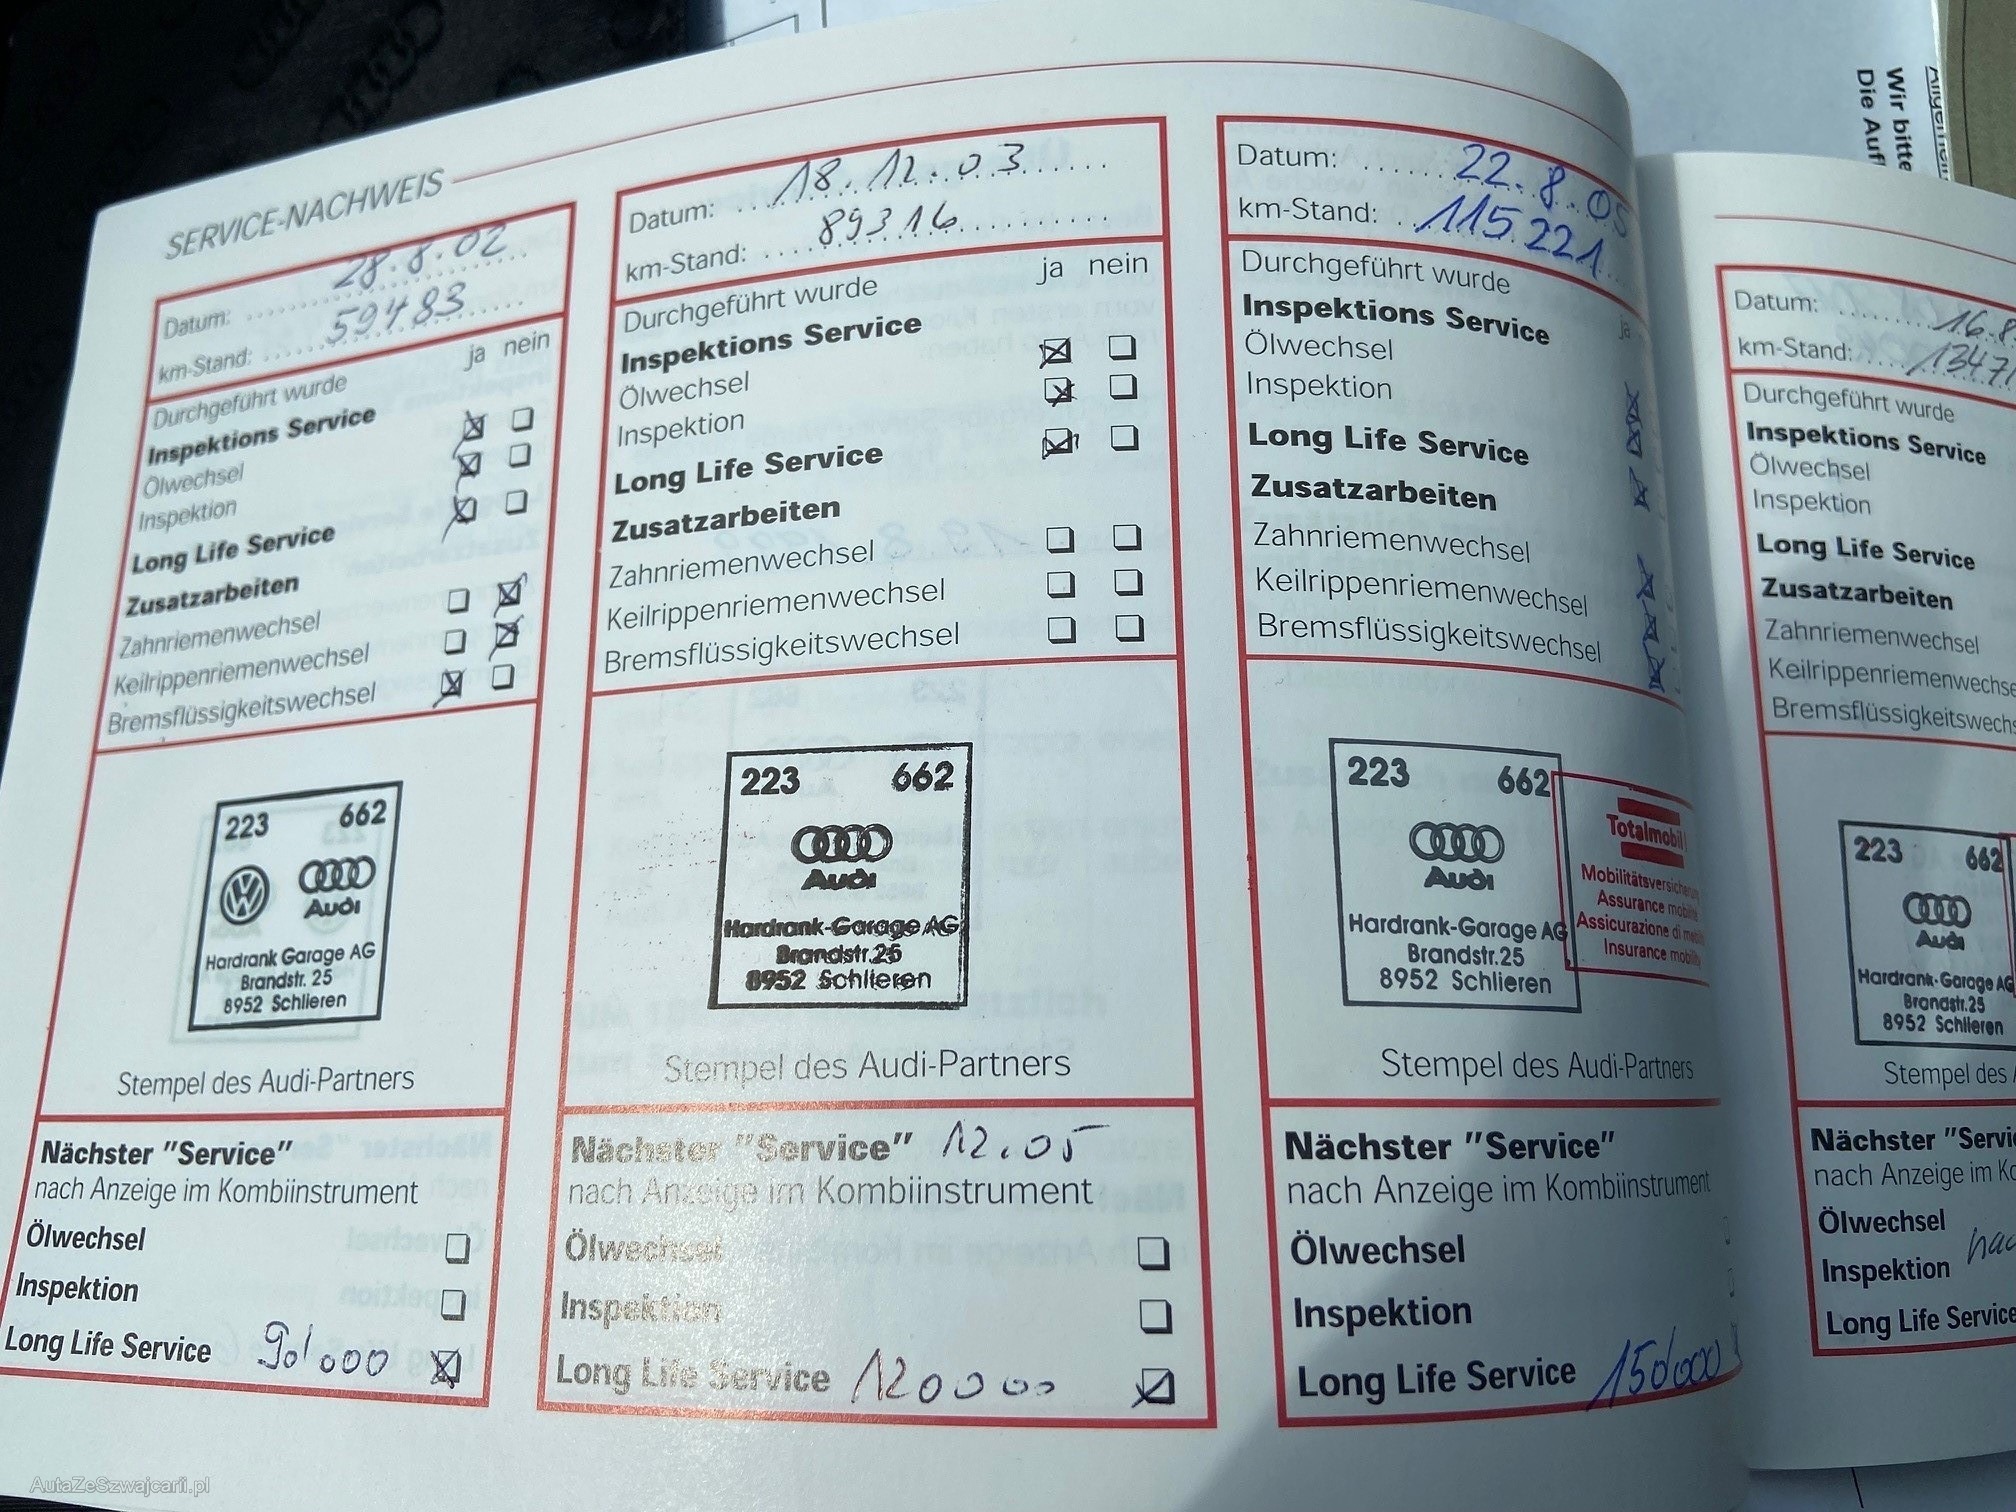 Allgemein
Wir bitte
Die Aufl
SERVICE-NACHWEIS
Datum: 28.8.02
km-Stand: 59483
Durchgeführt wurde ja nein
Inspektions Service
Ölwechsel
Inspektion
Long Life Service
Zusatzarbeiten
Zahnriemenwechsel
Keilrippenriemenwechsel
Bremsflüssigkeitswechsel
223 662
Audi
Hardrank Garage AG
Brandstr. 25
8952 Schlieren
Stempel des Audi-Partners
Nächster "Service"
nach Anzeige im Kombiinstrument
Ölwechsel
Inspektion
Long Life Service 90'000
Datum: 18.12.03
km-Stand: 89316
Durchgeführt wurde ja nein
Inspektions Service
Ölwechsel
Inspektion
Long Life Service
Zusatzarbeiten
Zahnriemenwechsel
Keilrippenriemenwechsel
Bremsflüssigkeitswechsel
223 662
Audi
Hardrank-Garage AG
Brandstr.25
8952 Schlieren
Stempel des Audi-Partners
Nächster "Service" 12.05
nach Anzeige im Kombiinstrument
Ölwechsel
Inspektion
Long Life Service 120000
Datum: 22.8.05
km-Stand: 115221
Durchgeführt wurde ja
Inspektions Service
Ölwechsel
Inspektion
Long Life Service
Zusatzarbeiten
Zahnriemenwechsel
Keilrippenriemenwechsel
Bremsflüssigkeitswechsel
223 662
Audi
Hardrank-Garage AG
Brandstr.25
8952 Schlieren
Totalmobil!
Mobilitätsversicherung
Assurance mobilité
Assicurazione di mobil
Insurance mobility
Stempel des Audi-Partners
Nächster "Service"
nach Anzeige im Kombiinstrument
Ölwechsel
Inspektion
Long Life Service 150'000
Datum: 16.8.
km-Stand: 1347
Durchgeführt wurde
Inspektions Service
Ölwechsel
Inspektion
Long Life Service
Zusatzarbeiten
Zahnriemenwechsel
Keilrippenriemenwechse
Bremsflüssigkeitswechs
223 662
Audi
Hardrank-Garage AG
Brandstr.25
8952 Schlieren
Stempel des
Nächster "Servi
nach Anzeige im Ko
Ölwechsel
Inspektion
Long Life Service
AutaZeSzwajcarii.pl